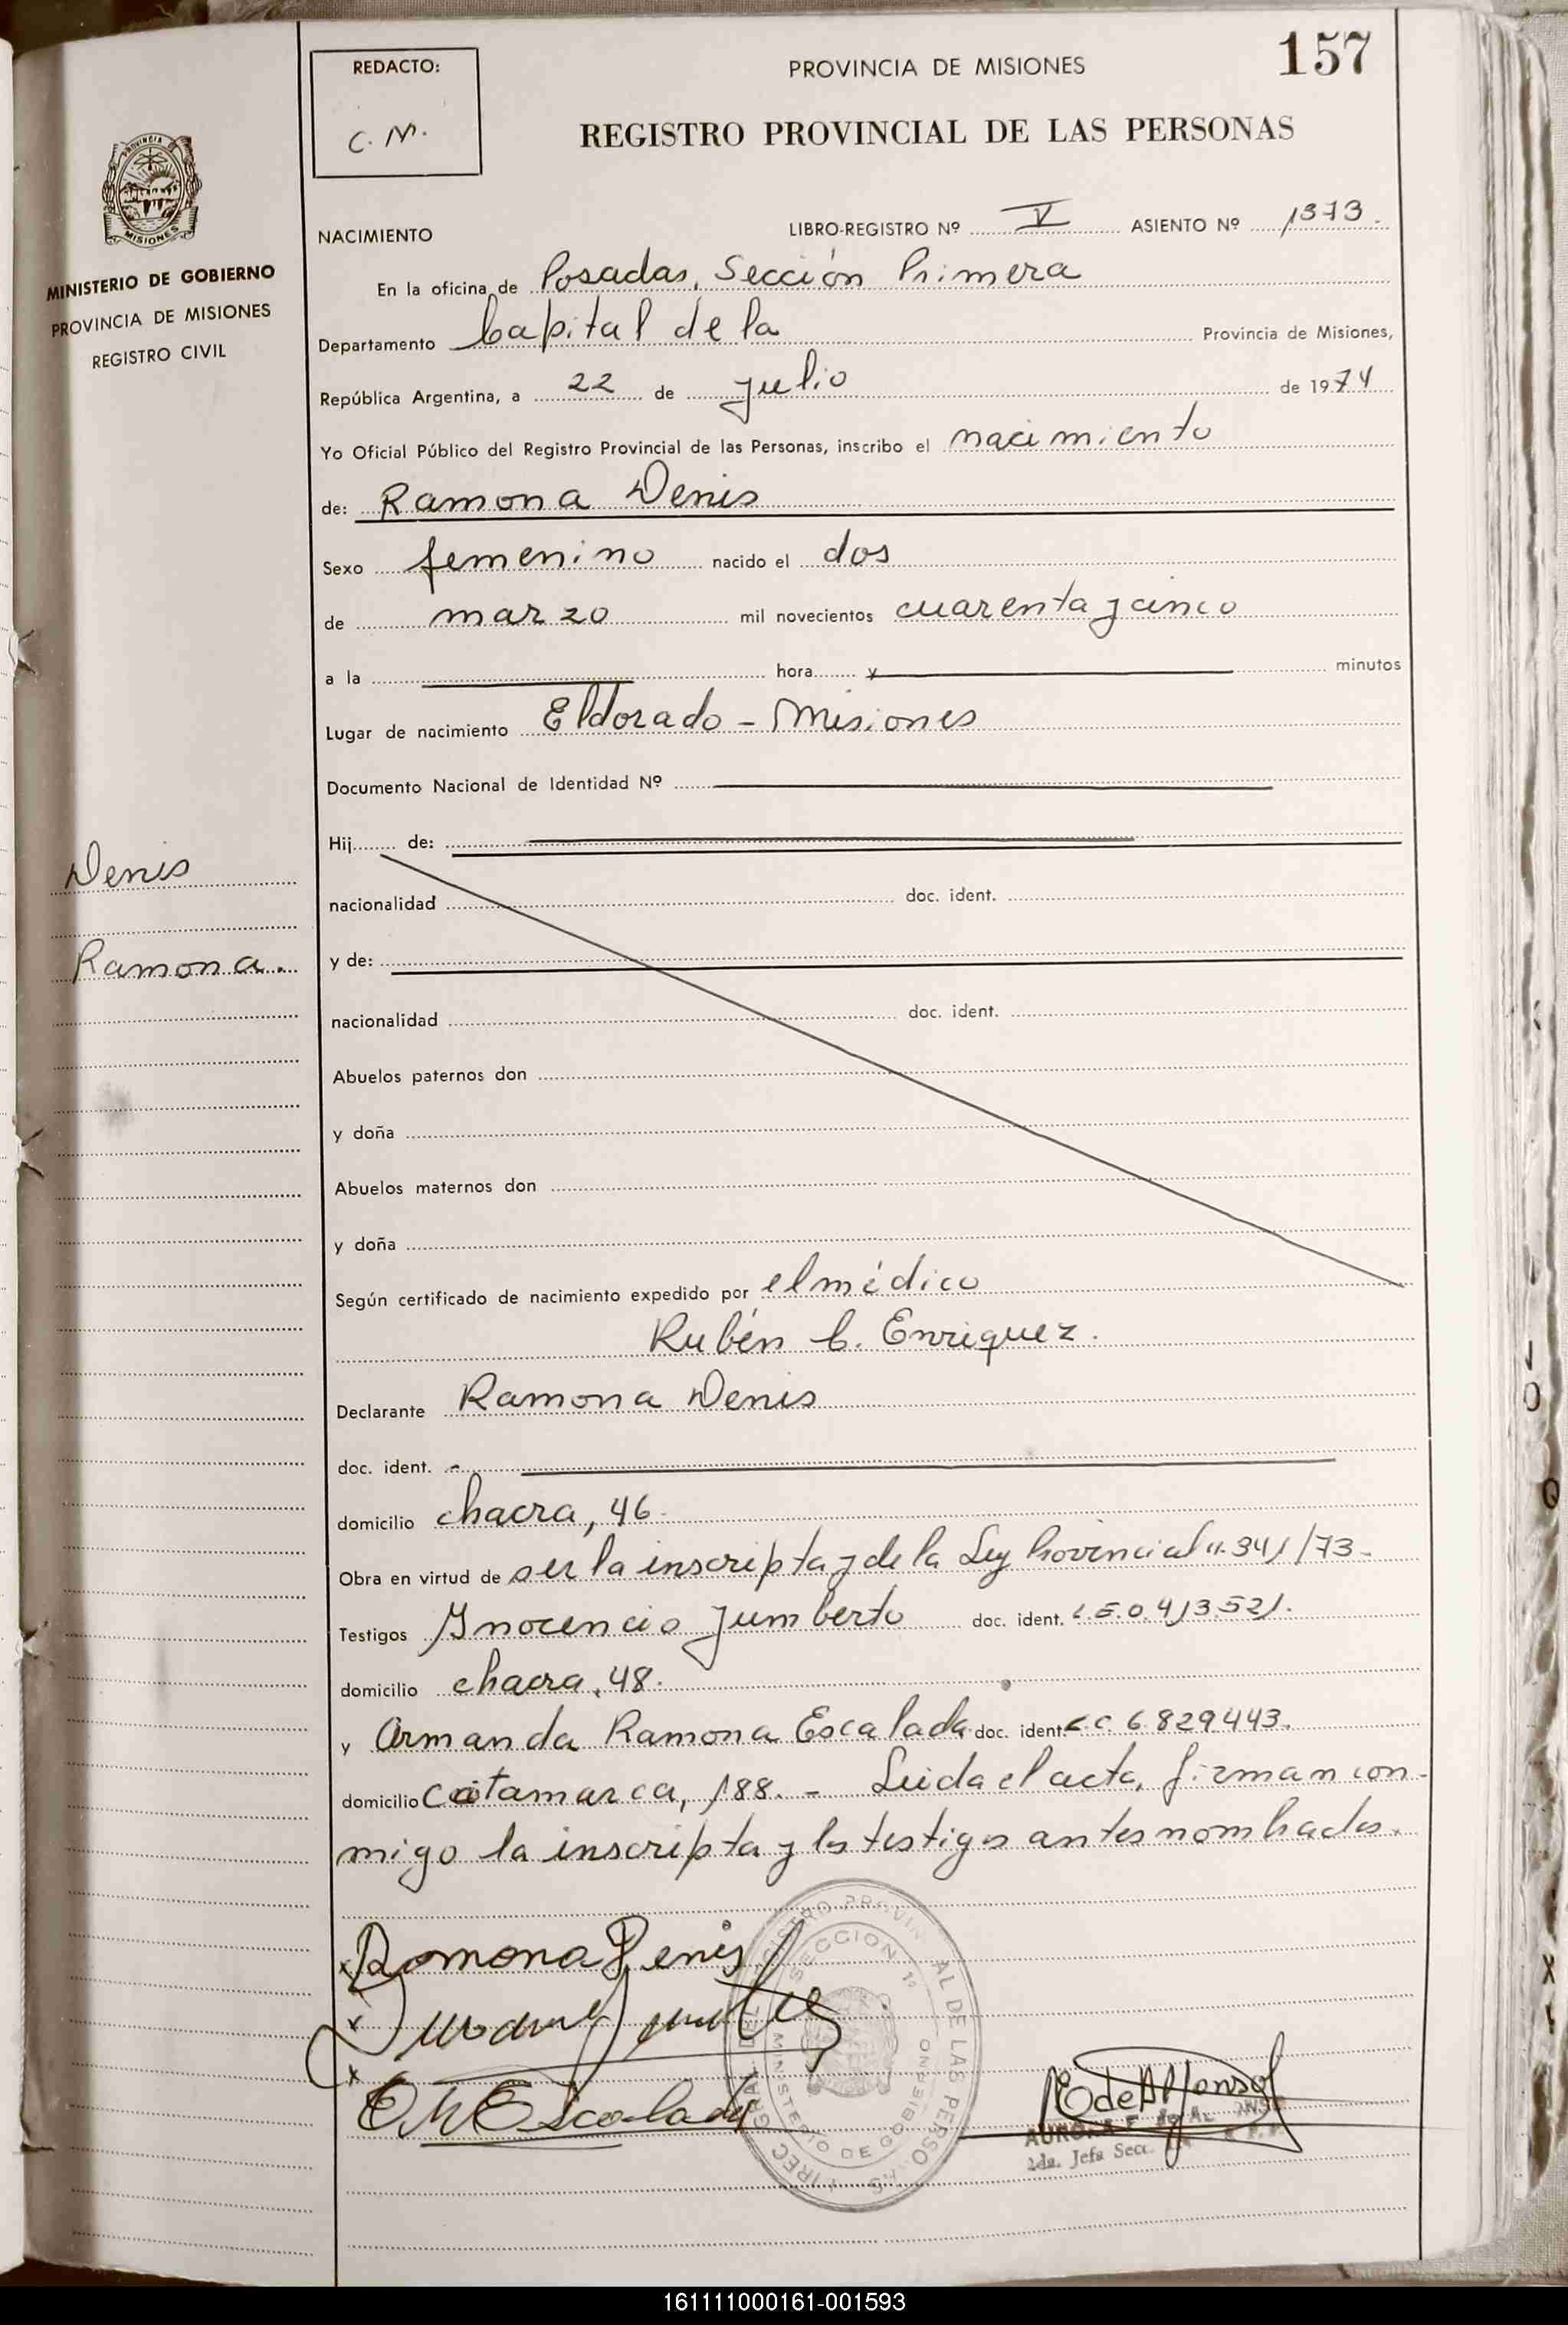 157
REDACTO:
C. M.
PROVINCIA DE MISIONES
REGISTRO PROVINCIAL DE LAS PERSONAS
PROVINCIA DE
MISIONES
MINISTERIO DE GOBIERNO
PROVINCIA DE MISIONES
REGISTRO CIVIL
NACIMIENTO LIBRO-REGISTRO Nº V ASIENTO Nº 1373.
En la oficina de Posadas, Sección Primera
Departamento Capital de la Provincia de Misiones,
República Argentina, a 22 de julio de 1974
Yo Oficial Público del Registro Provincial de las Personas, inscribo el nacimiento
de: Ramona Denis
Sexo femenino nacido el dos
de marzo mil novecientos cuarenta y cinco
a la hora y minutos
Lugar de nacimiento Eldorado - Misiones
Documento Nacional de Identidad Nº
Hij de:
Denis
nacionalidad doc. ident.
Ramona.
y de:
nacionalidad doc. ident.
Abuelos paternos don
y doña
Abuelos maternos don
y doña
Según certificado de nacimiento expedido por el médico
Rubén C. Enriquez.
Declarante Ramona Denis
doc. ident. -
domicilio chacra, 46.
Obra en virtud de ser la inscripta y de la Ley Provincial 341/73-
Testigos Inocencio Jumberto doc. ident.
domicilio chacra, 48.
y Armanda Ramona Escalada doc. ident. 6.829443.
domicilio Catamarca, 188. - Leida el acta, firman con-
migo la inscripta y los testigos antes nombrados.
x Ramona Denis
x
x Escalada
SECCION 1º
MINISTERIO DE GOBIERNO
2da. Jefa Secc.
161111000161-001593